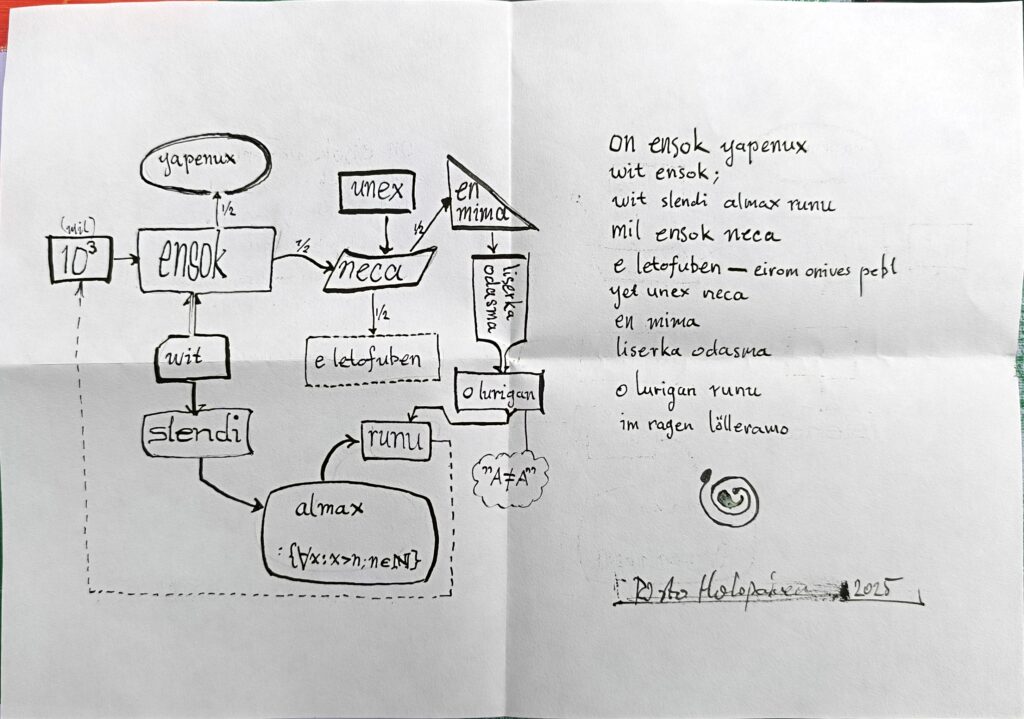 yapenux
unex
en
mima
(mil)
1/2
1/2
10³
ensok
1/2
neca
liserka
odasma
1/2
wit
e letofuben
o lurigan
slendi
runu
"A≠A"
almax
: {∀x: x>n; n∈ℕ}
on ensok yapenux
wit ensok;
wit slendi almax runu
mil ensok neca
e letofuben – eirom onives pebl
yet unex neca
en mima
liserka odasma
o lurigan runu
im ragen lölleramo
Risto Holopainen 2025